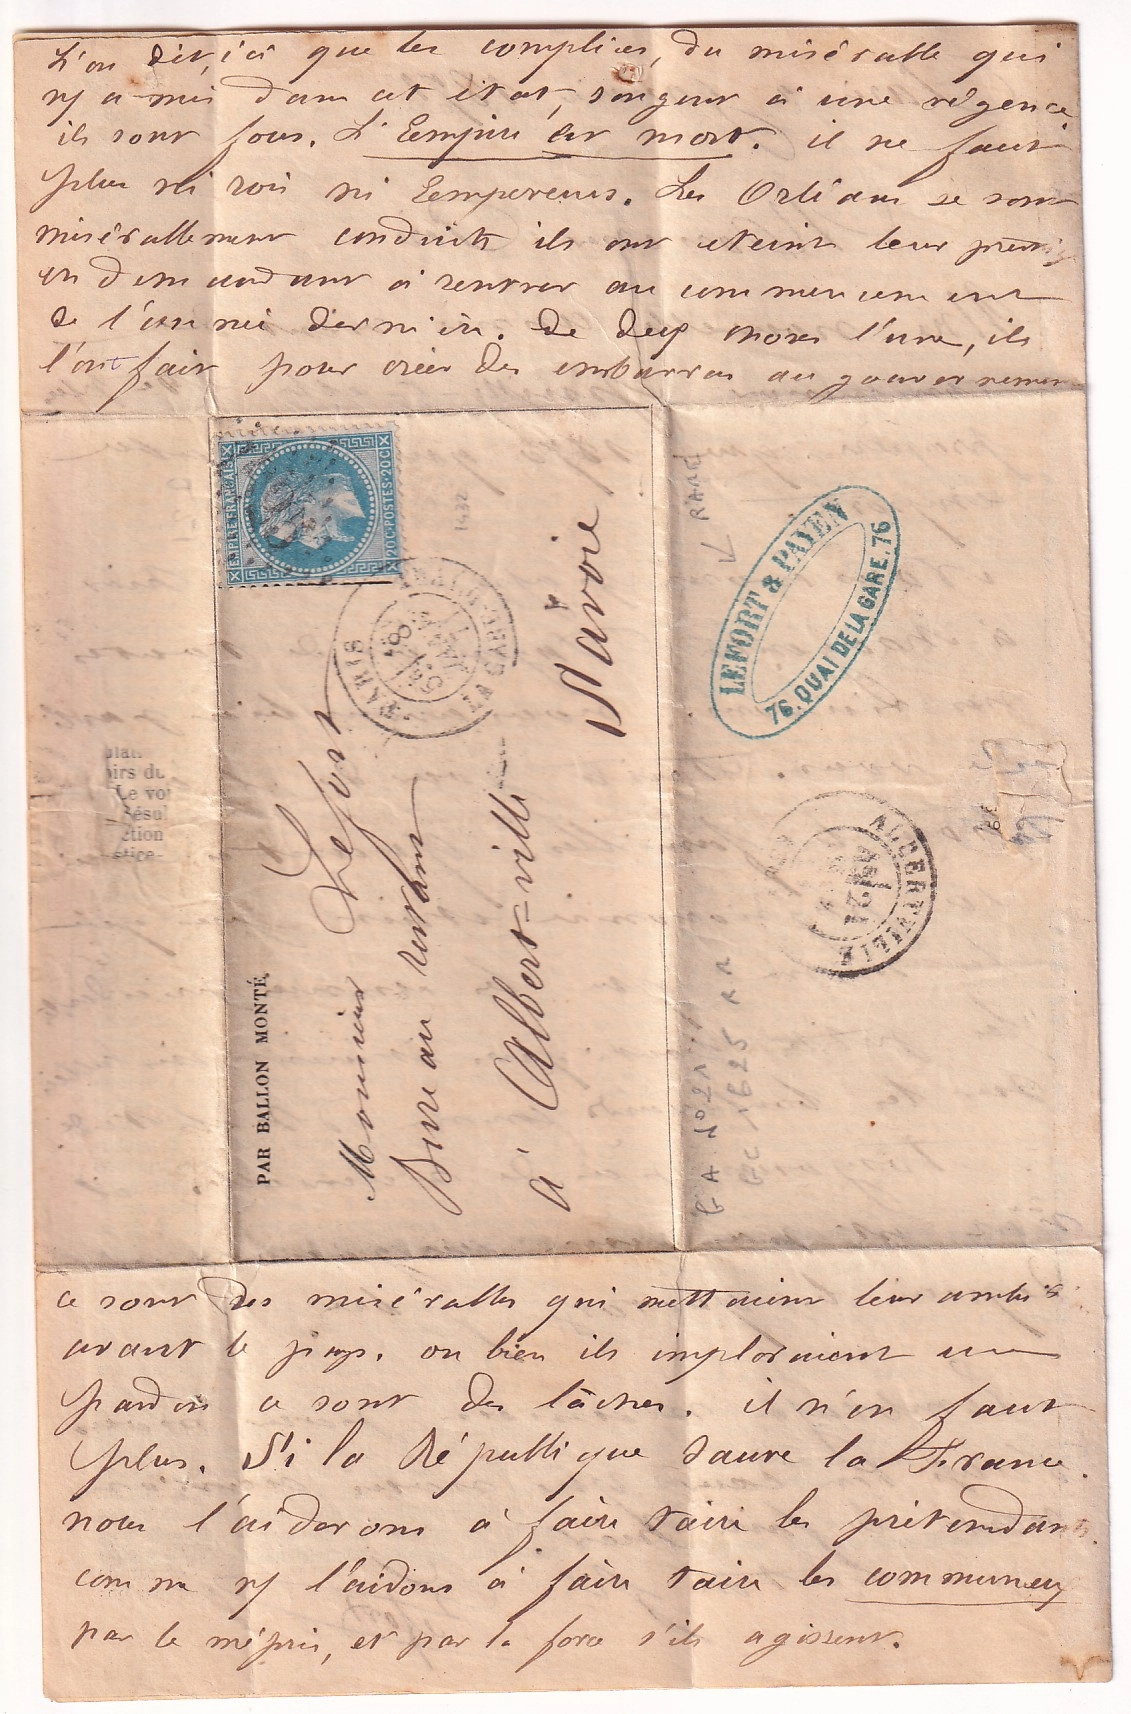 L'on dit, ici que les complices, du misérable qui
ns a mis dans cet état, songent à une régence
ils sont fous. L'Eempire est mort. il ne faut
plus ni rois ni Eempereurs. Les Orléans se sont
misérablement conduits ils ont éteint leur
en demandant à rentrer au commencement
de l'année dernière. De deux choses l'une, ils
l'ont fait pour créer des embarras au gouvernemen
EMPIRE FRANÇAIS
20C POSTES 20C
PARIS
PAR BALLON MONTÉ.
Monsieur Lefort
Bureau restant
à Albert-ville
Savoie
1432
RARE
LEFORT & PAYEN
76. QUAI DE LA GARE. 76
ALBERTVILLE
GC 1625
plan
oirs du
Le vo
Résul
ction
stice-
ce sont des misérables qui mettaient leur ambi
avant le pays. ou bien ils imploraient un
pardon ce sont des lâches. il n'en faut
plus. Si la République sauve la France.
nous l'aiderons à faire taire les prétendants
comme ns l'aidons à faire taire les communeux
par le mépris, et par la force s'ils agissent.